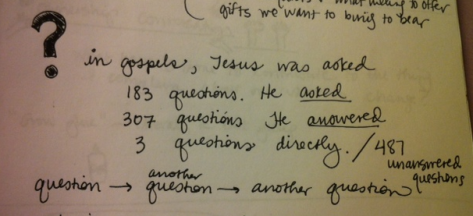 what
to offer
gifts we want to bring to bear
?
in gospels, Jesus was asked
183 questions. He asked
307 questions He answered
3 questions directly. / 487
unanswered
questions
another
question → question → another question